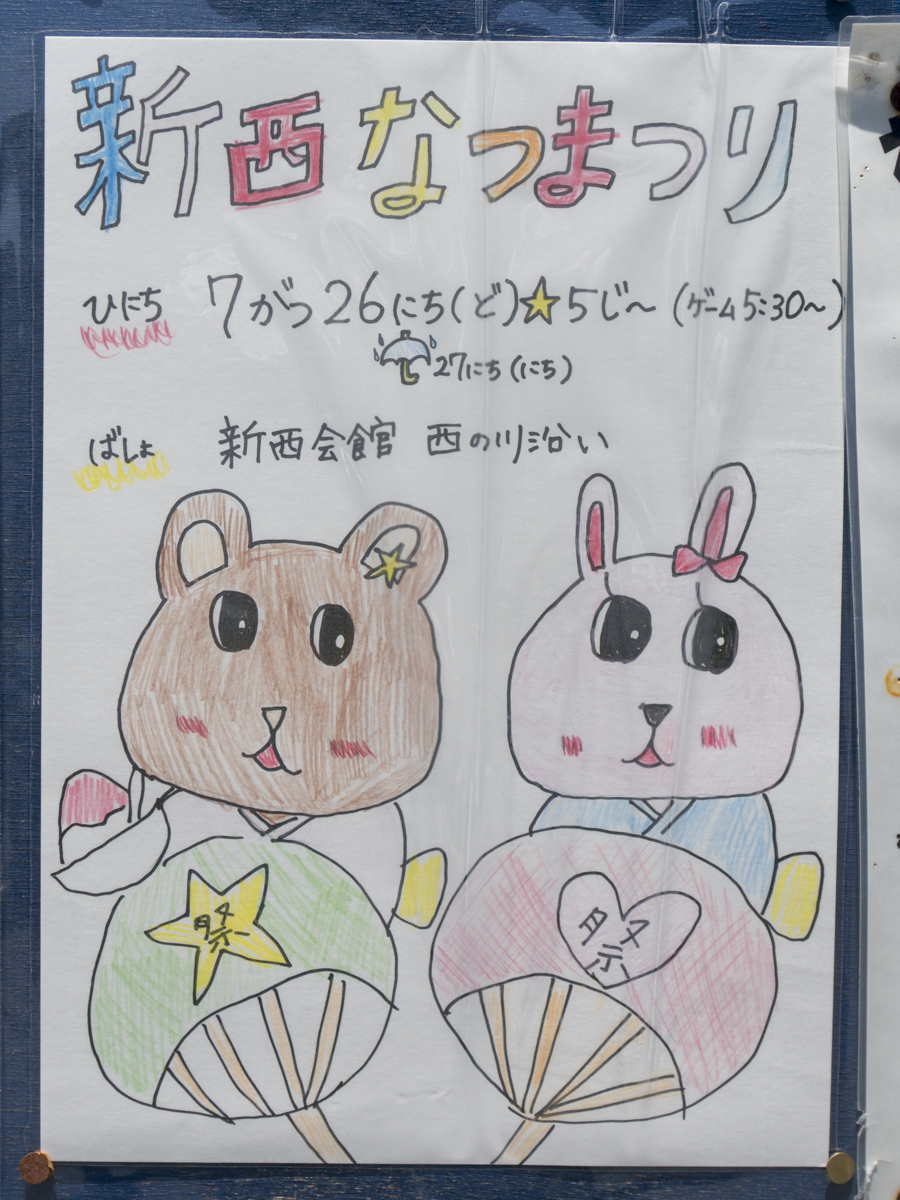 新西なつまつり
ひにち 7がつ26にち(ど)★5じ〜(ゲーム5:30〜)
27にち(にち)
ばしょ 新西会館 西の川沿い
祭
祭